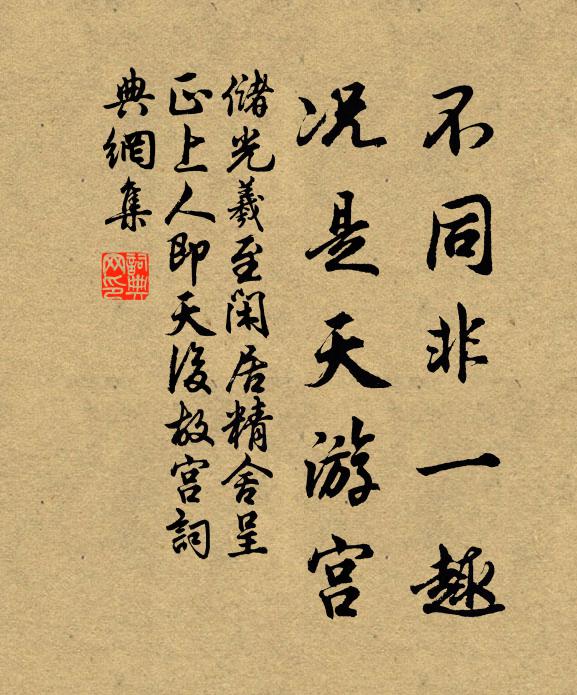 不同非一趣
况是天游宫
储光羲至闲居精舍呈
正上人即天後故宫詞
典網集
詞典网印